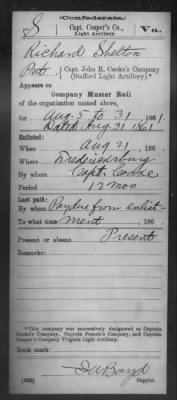 (Confederate.)
S Capt. Cooper's Co., Light Artillery. Va.
Richard Shelton
Pvt, Capt. John R. Cooke's Company
(Stafford Light Artillery).*
Appears on
Company Muster Roll
of the organization named above,
for Aug. 5 to 31, 1861.
Dated Aug. 31 1861
Enlisted:
When Aug 21, 186 .
Where Fredericksburg
By whom Capt. Cooke
Period 12 mos
Last paid:
By whom Paydue from enlist-
To what time ment, 186 .
Present or absent Present
Remarks:
*This company was successively designated as Captain
Cooke's Company, Captain French's Company, and Captain
Cooper's Company Virginia Light Artillery.
Book mark:
Boyd
Copyist.